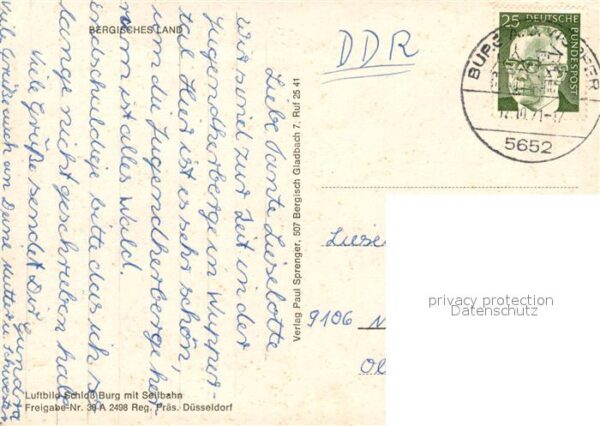 BERGISCHES LAND
Liebe Tante Lieselotte
Wir sind zur Zeit in der
Jugendherberge in Wupper-
tal Hier ist es sehr schön,
um die Jugendherberge her-
rum ist alles Wald.
Entschuldige bitte das ich so
lange nicht geschrieben habe
Viele Grüße sendet Dir Gundra
Viele Grüße auch an Deine Mutter u. Schwester
Luftbild Schloß Burg mit Seilbahn
Freigabe-Nr. 39 A 2498 Reg. Präs. Düsseldorf
Verlag Paul Sprenger, 507 Bergisch Gladbach 7, Ruf 25 41
DDR
25 DEUTSCHE
BUNDESPOST
BURG A.D. WUPPER
5652
Liesel
9106
privacy protection
Datenschutz